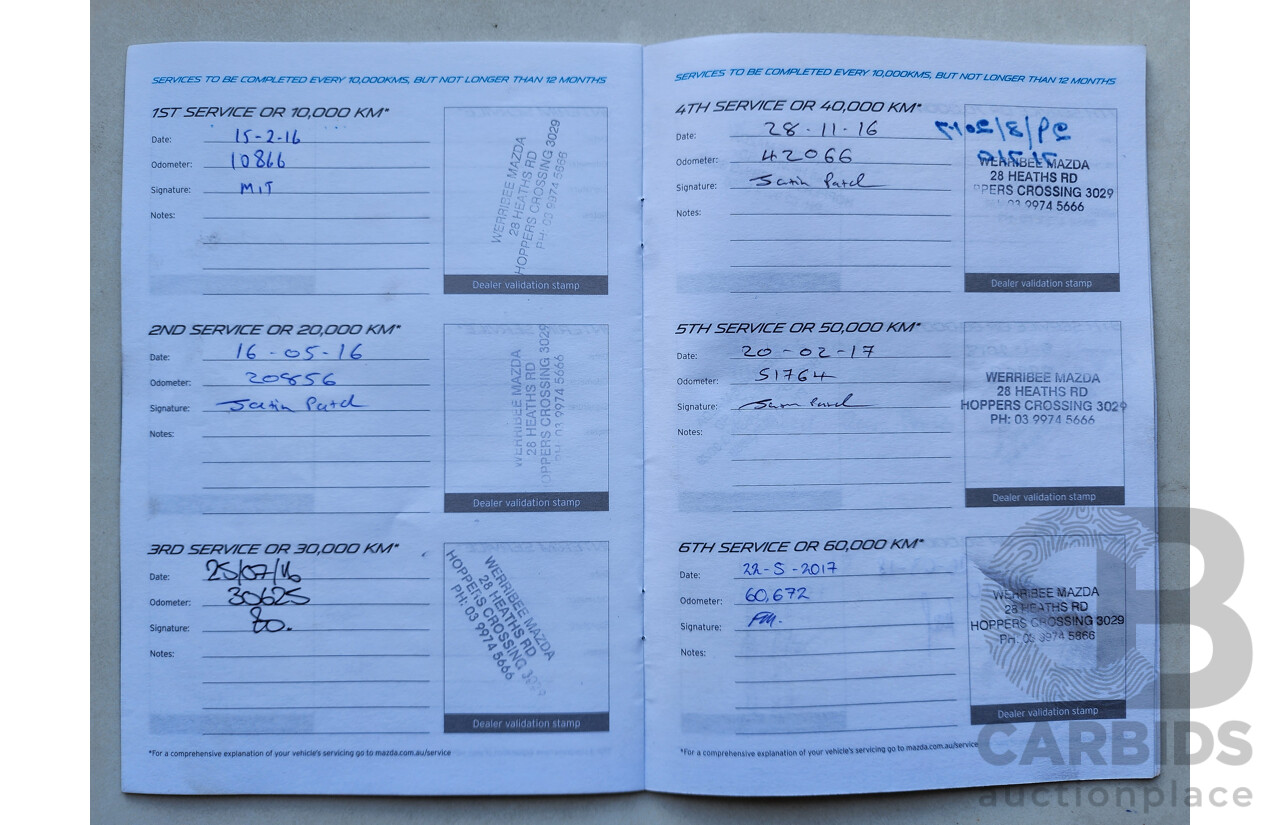 SERVICES TO BE COMPLETED EVERY 10,000KMS, BUT NOT LONGER THAN 12 MONTHS
1ST SERVICE OR 10,000 KM*
Date: 15-2-16
Odometer: 10866
Signature: MIT
Notes:
WERRIBEE MAZDA
28 HEATHS RD
HOPPERS CROSSING 3029
PH: 03 9974 5666
Dealer validation stamp
2ND SERVICE OR 20,000 KM*
Date: 16-05-16
Odometer: 20856
Signature: Jatin Patel
Notes:
WERRIBEE MAZDA
28 HEATHS RD
HOPPERS CROSSING 3029
PH: 03 9974 5666
Dealer validation stamp
3RD SERVICE OR 30,000 KM*
Date: 25/07/16
Odometer: 30625
Signature:
Notes:
WERRIBEE MAZDA
28 HEATHS RD
HOPPERS CROSSING 3029
PH: 03 9974 5666
Dealer validation stamp
*For a comprehensive explanation of your vehicle's servicing go to mazda.com.au/service
SERVICES TO BE COMPLETED EVERY 10,000KMS, BUT NOT LONGER THAN 12 MONTHS
4TH SERVICE OR 40,000 KM*
Date: 28-11-16
Odometer: 42066
Signature: Jatin Patel
Notes:
WERRIBEE MAZDA
28 HEATHS RD
PPERS CROSSING 3029
03 9974 5666
Dealer validation stamp
5TH SERVICE OR 50,000 KM*
Date: 20-02-17
Odometer: 51764
Signature:
Notes:
WERRIBEE MAZDA
28 HEATHS RD
HOPPERS CROSSING 3029
PH: 03 9974 5666
Dealer validation stamp
6TH SERVICE OR 60,000 KM*
Date: 22-5-2017
Odometer: 60,672
Signature:
Notes:
WERRIBEE MAZDA
28 HEATHS RD
HOPPERS CROSSING 3029
PH: 03 9974 5666
Dealer validation stamp
*For a comprehensive explanation of your vehicle's servicing go to mazda.com.au/service
CARBIDS
auctionplace